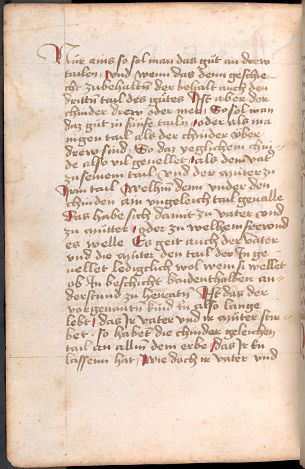 Nür ains so sol man das güt an drew
tailen / und wenn das denn geschie
cht zubehaltn der behalt auch den
drittn tail des gütes Ist aber der
chinder drew oder mer / So sol man
daz güt in fünff tailn / oder als ma
nigen tail als der chinder über
drew sind / So daz yeglichem chin
de also vil geuellet / als dem vatr
zu seinem tail und der müter zu
irm tail Welhm denn under den
chinden am ungeleich tail geualle
Das habe sich damit zu vater und
zu müter / oder zu welhem seewnd
es welle Es geit auch der vater
und die müter den tail der In ge
uellet lediglich wol wem si wellet
ob In beschicht baidenthalben an
derstund zu heiratn Ist das der
vorgenantn kind ains als lange
lebt / das Ir vater und ir müter ster
bet / so habet die chinder geleichen
tail an allm dem erbe / das Ir En
lassenn hat / wie doch ir vater und